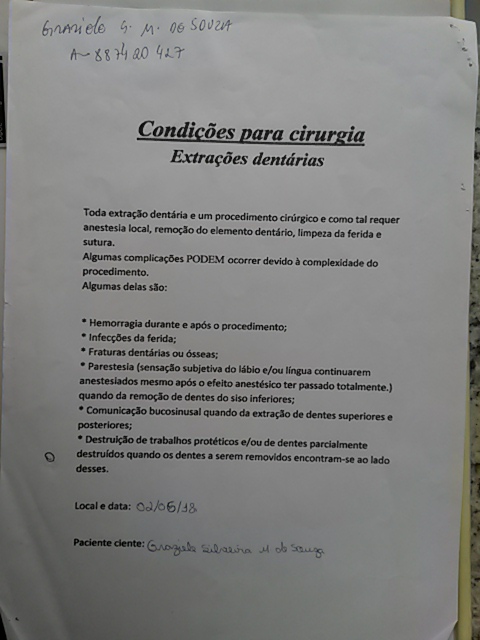 Graziele G. M. DE SOUZA
A-887420427
Condições para cirurgia
Extrações dentárias
Toda extração dentária e um procedimento cirúrgico e como tal requer
anestesia local, remoção do elemento dentário, limpeza da ferida e
sutura.
Algumas complicações PODEM ocorrer devido à complexidade do
procedimento.
Algumas delas são:
* Hemorragia durante e após o procedimento;
* Infecções da ferida;
* Fraturas dentárias ou ósseas;
* Parestesia (sensação subjetiva do lábio e/ou língua continuarem
anestesiados mesmo após o efeito anestésico ter passado totalmente.)
quando da remoção de dentes do siso inferiores;
* Comunicação bucosinusal quando da extração de dentes superiores e
posteriores;
* Destruição de trabalhos protéticos e/ou de dentes parcialmente
destruídos quando os dentes a serem removidos encontram-se ao lado
desses.
Local e data: 02/06/18
Paciente ciente: Graziele Silveira M de Souza